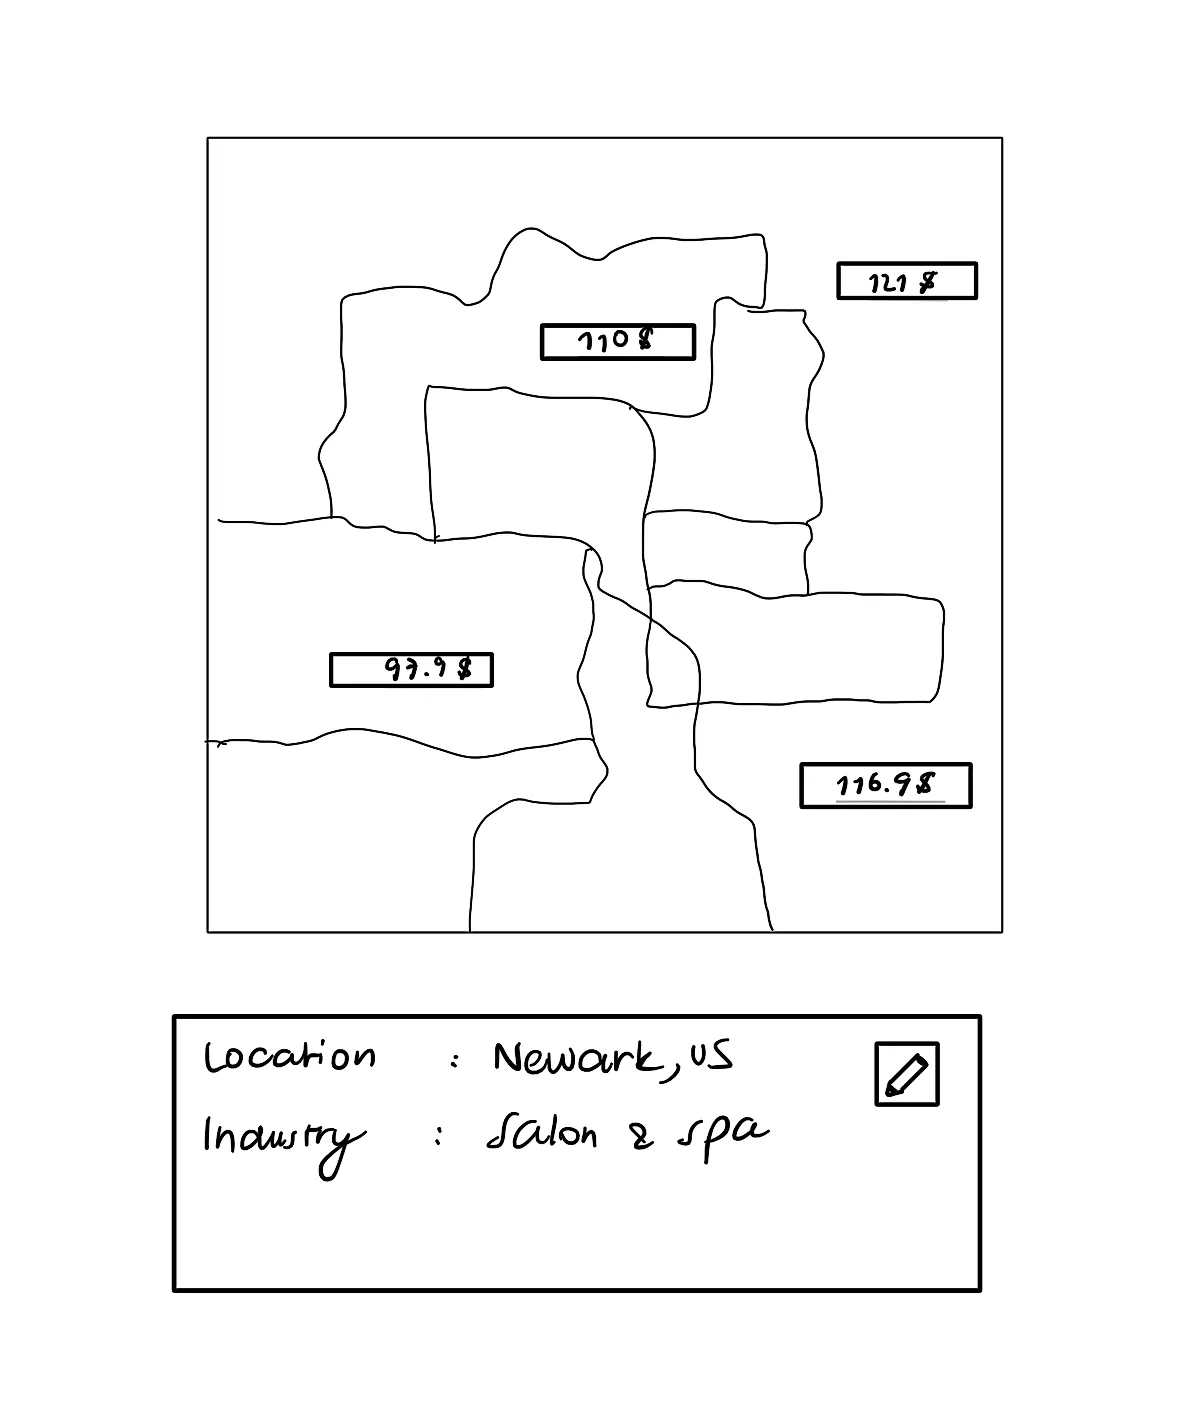 121 $
110 $
97.9 $
116.9 $
Location : Newark, US
Industry : Salon & spa